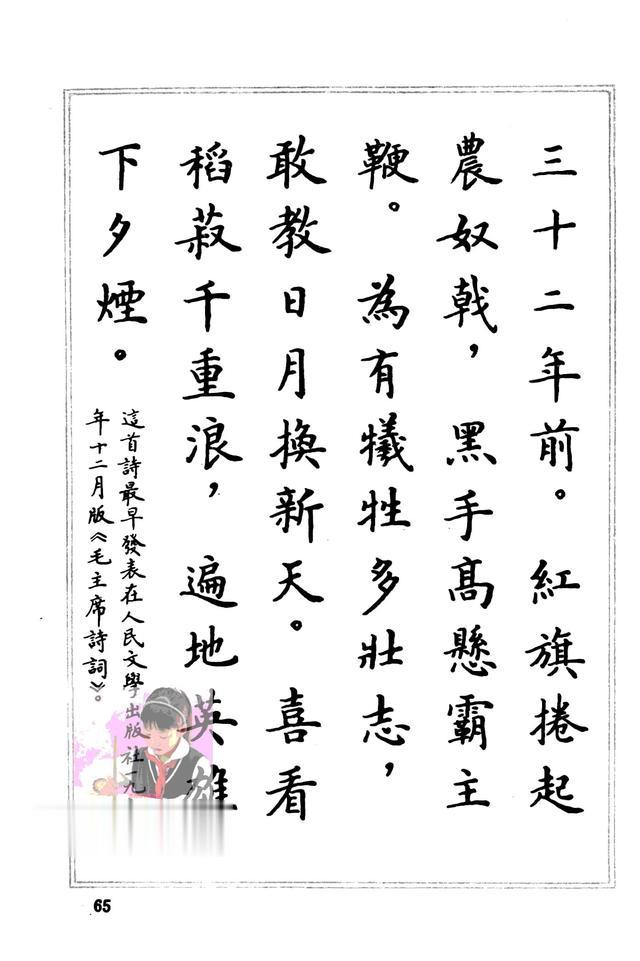 三十二年前。 紅旗捲起
農奴戟, 黑手高懸霸主
鞭。 為有犧牲多壯志,
敢教日月換新天。 喜看
稻菽千重浪, 遍地英雄
下夕煙。
這首詩最早發表在人民文學出版社一九
年十二月版《毛主席詩詞》。
65